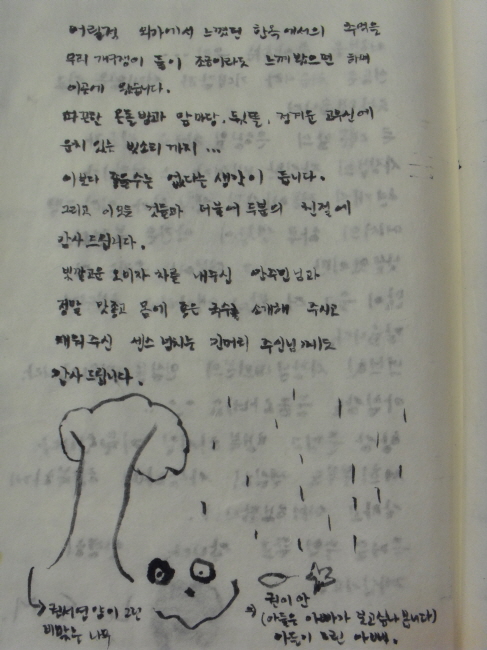 어릴적 외가에서 느꼈던 한옥에서의 추억을
우리 개구쟁이 들이 조금이라도 느껴봤으면 하며
이곳에 왔습니다.
따끈한 온돌방과 앞마당, 뒷뜰, 정겨운 고무신에
운치 있는 빗소리 까지 ...
이보다 좋을수는 없다는 생각이 듭니다.
그리고 이모든 것들과 더불어 두분의 친절에
감사드립니다.
빛깔고운 오미자 차를 내주신 안주인님과
정말 맛좋고 몸에 좋은 국수를 소개해 주시고
태워주신 센스 넘치는 긴머리 주인님께도
감사드립니다.
양이 그린
비맞은 나무
권이안
(아들은 아빠가 보고싶나 봅니다)
아들이 그린 아빠.